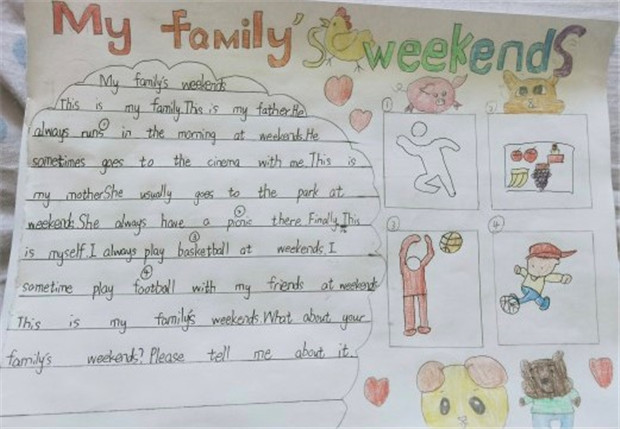 My family's weekends
My family's weekends
This is my family.This is my father.He
always runs ① in the morning at weekends.He
sometimes goes to the cinema with me.This is
my mother.She usually goes to the park at
weekends.She always have a picnic ② there.Finally,This
is myself.I always play basketball ③ at weekends.I
sometime play football ④ with my friends at weekends
This is my family's weekends.What about your
family's weekends? Please tell me about it.
① ②
③ ④